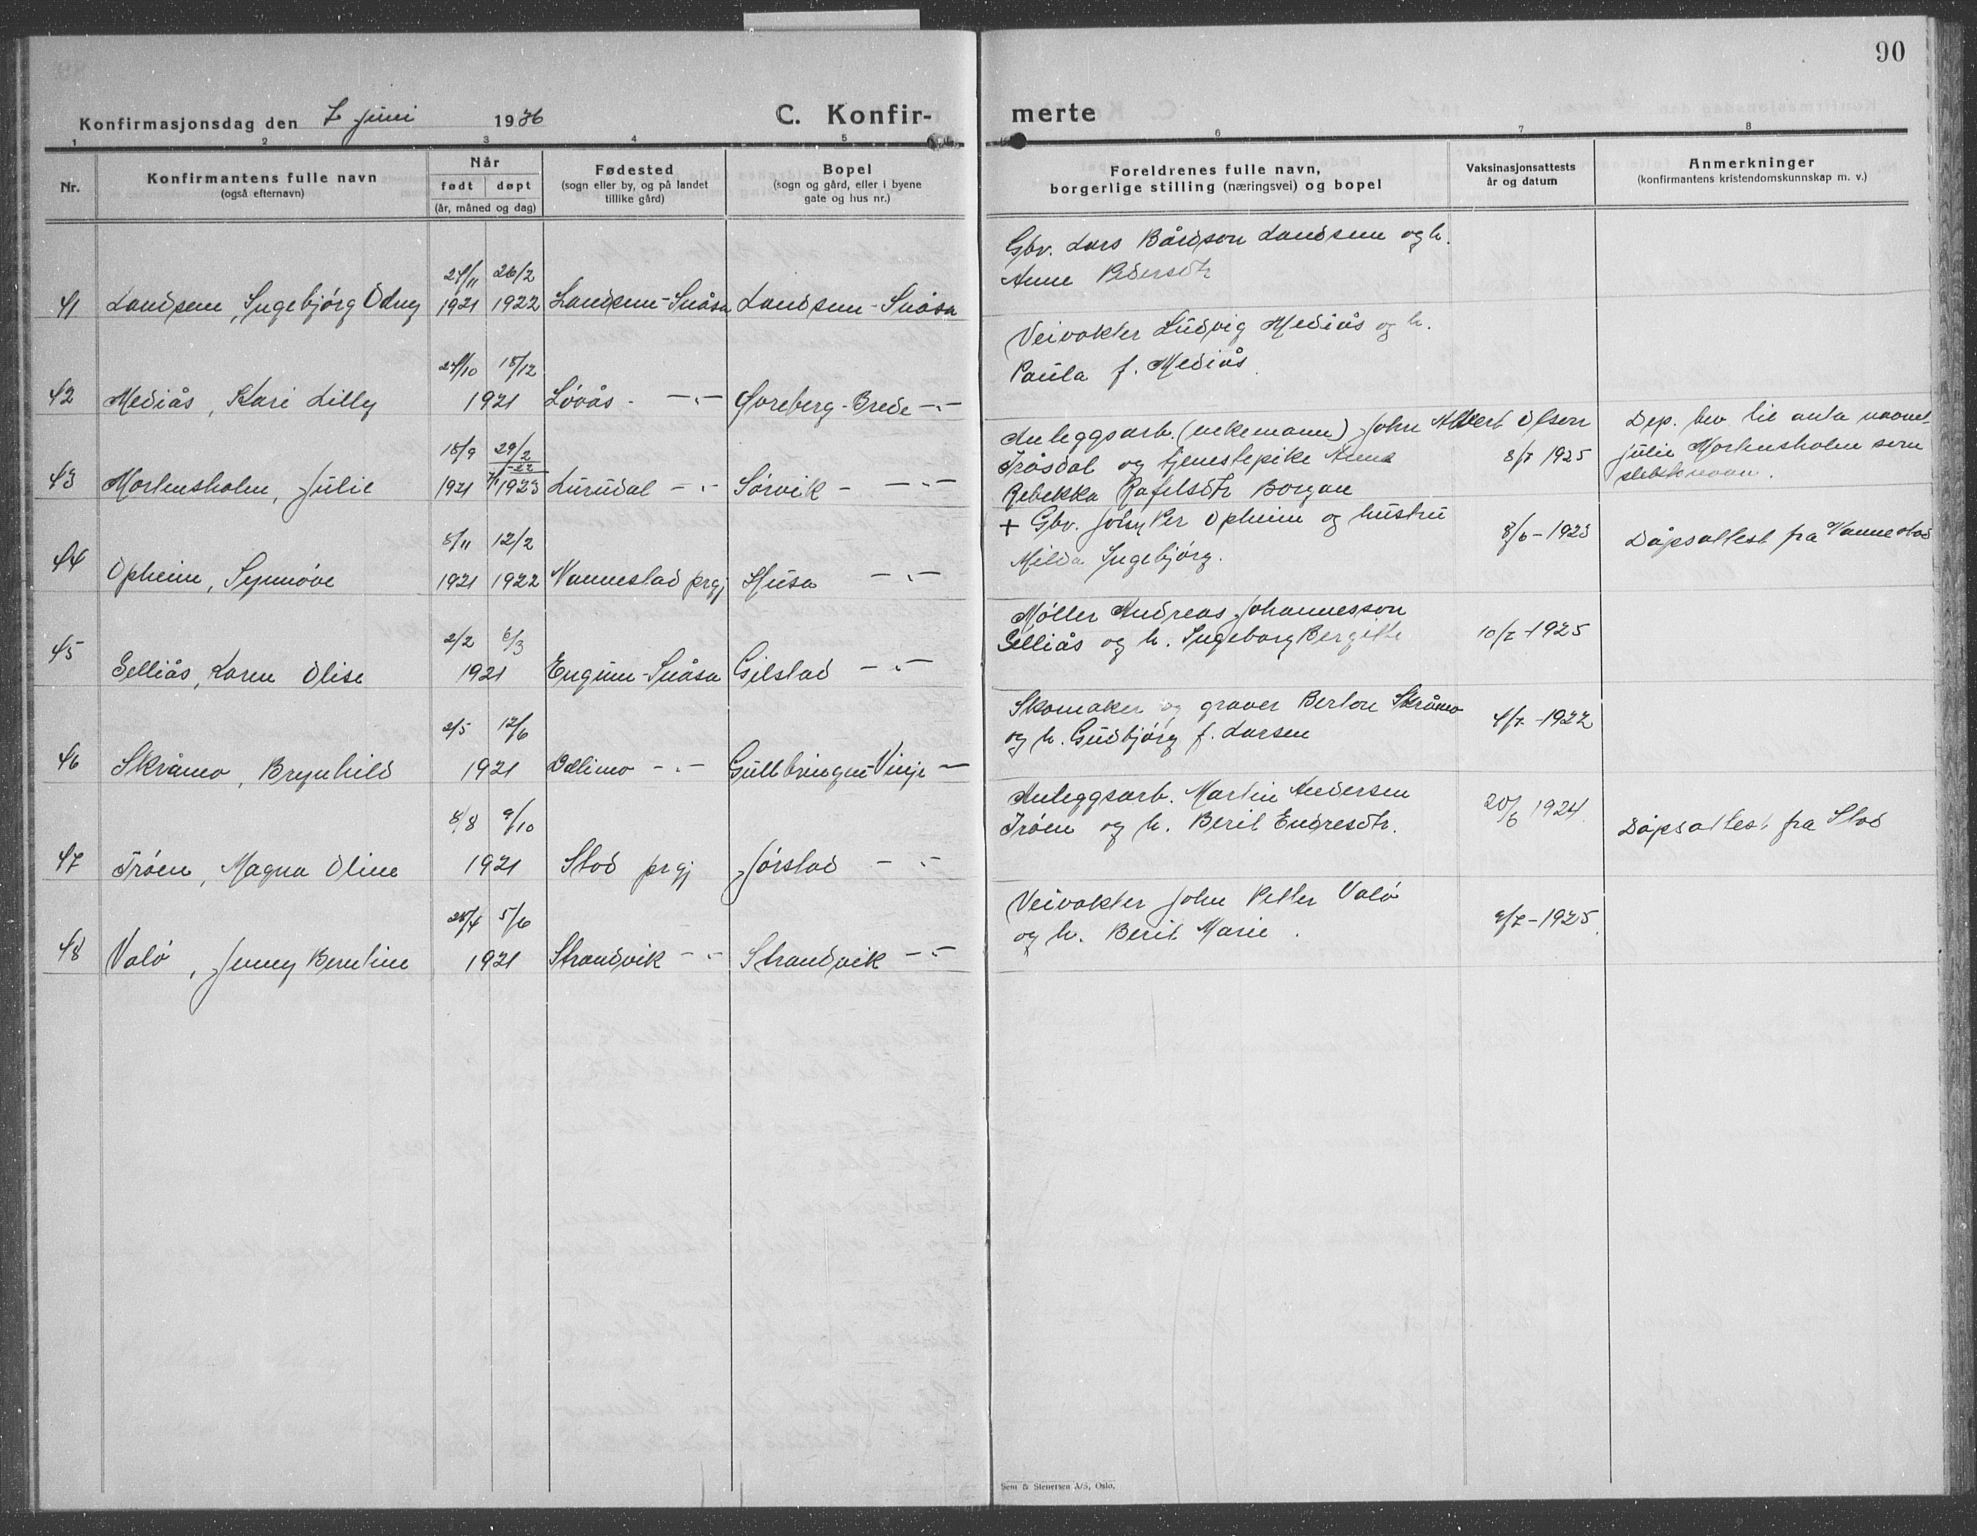 90
Konfirmasjonsdag den 7 juni 1936
C. Konfir-
merte
1 2 3 4 5 6 7 8
Nr.
Konfirmantens fulle navn
(også efternavn)
Når
født døpt
(år, måned og dag)
Fødested
(sogn eller by, og på landet
tillike gård)
Bopel
(sogn og gård, eller i byene
gate og hus nr.)
Foreldrenes fulle navn,
borgerlige stilling (næringsvei) og bopel
Vaksinasjonsattests
år og datum
Anmerkninger
(konfirmantens kristendomskunnskap m. v.)
Gbv. Lars Bårdson Landsem og h.
Anne Pedersdtr
26/2
41 Landsem, Ingebjørg Odny 1921 1922 Landsem - Snåsa Landsem - Snåsa
Veivokter Ludvig Mediås og h.
Paula f. Mediås.
15/12
42 Mediås, Kari Lilly 1921 Løvås - -"- Øvreberg - Brede -"-
Anleggsarb. (enkemann) John Albert Olsen
Trøsdal og tjenestepike Anna
Rebekka Rafelsdtr Borgan
8/7 1925
Dep. bev. til anta navnet
Julie Mortensholm som
slektsnavn.
18/9 29/2
-22
43 Mortensholm, Julie 1921 1923 Lurudal -"- Sørvik - -"-
+ Gbv. Per Opheim og hustru
Milda Ingebjørg.
8/6 - 1923
Dåpsattest fra Vannestad
8/11 12/2
44 Opheim, Synnøve 1921 1922 Vannestad prgj Husa -"-
Møller Andreas Johannesson
Selliås og h. Ingeborg Bergitte
10/7 - 1925
2/2 6/3
45 Selliås, Karen Olise 1921 Engum - Snåsa Gilstad -"-
Skomaker og graver Berton Skråmo
og h. Gudbjørg f. Larsen
4/7 - 1922
2/5 12/6
46 Skråmo, Brynhild 1921 Dalimo -"- Gullbringen - Vinje -
Anleggsarb. Martin Andersen
Trøen og h. Beril Endresdtr.
20/6 1924.
Dåpsattest fra Stod
8/8 9/10
47 Trøen, Magna Oline 1921 Stod prgj Jørstad -"-
Veivokter John Petter Valø
og h. Berit Marie.
9/7 - 1925.
25/4 5/6
48 Valø, Jenny Berntine 1921 Strandvik -"- Strandvik -"-
Sem & Stenersen A/S, Oslo.